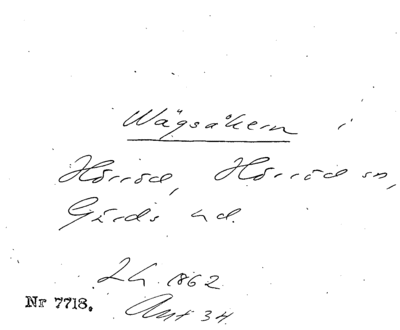 Wägsåkern i
Hörröd, Hörröd sn,
Gärds hd.
Lh. 1862
Nr 7718.
Ant 34